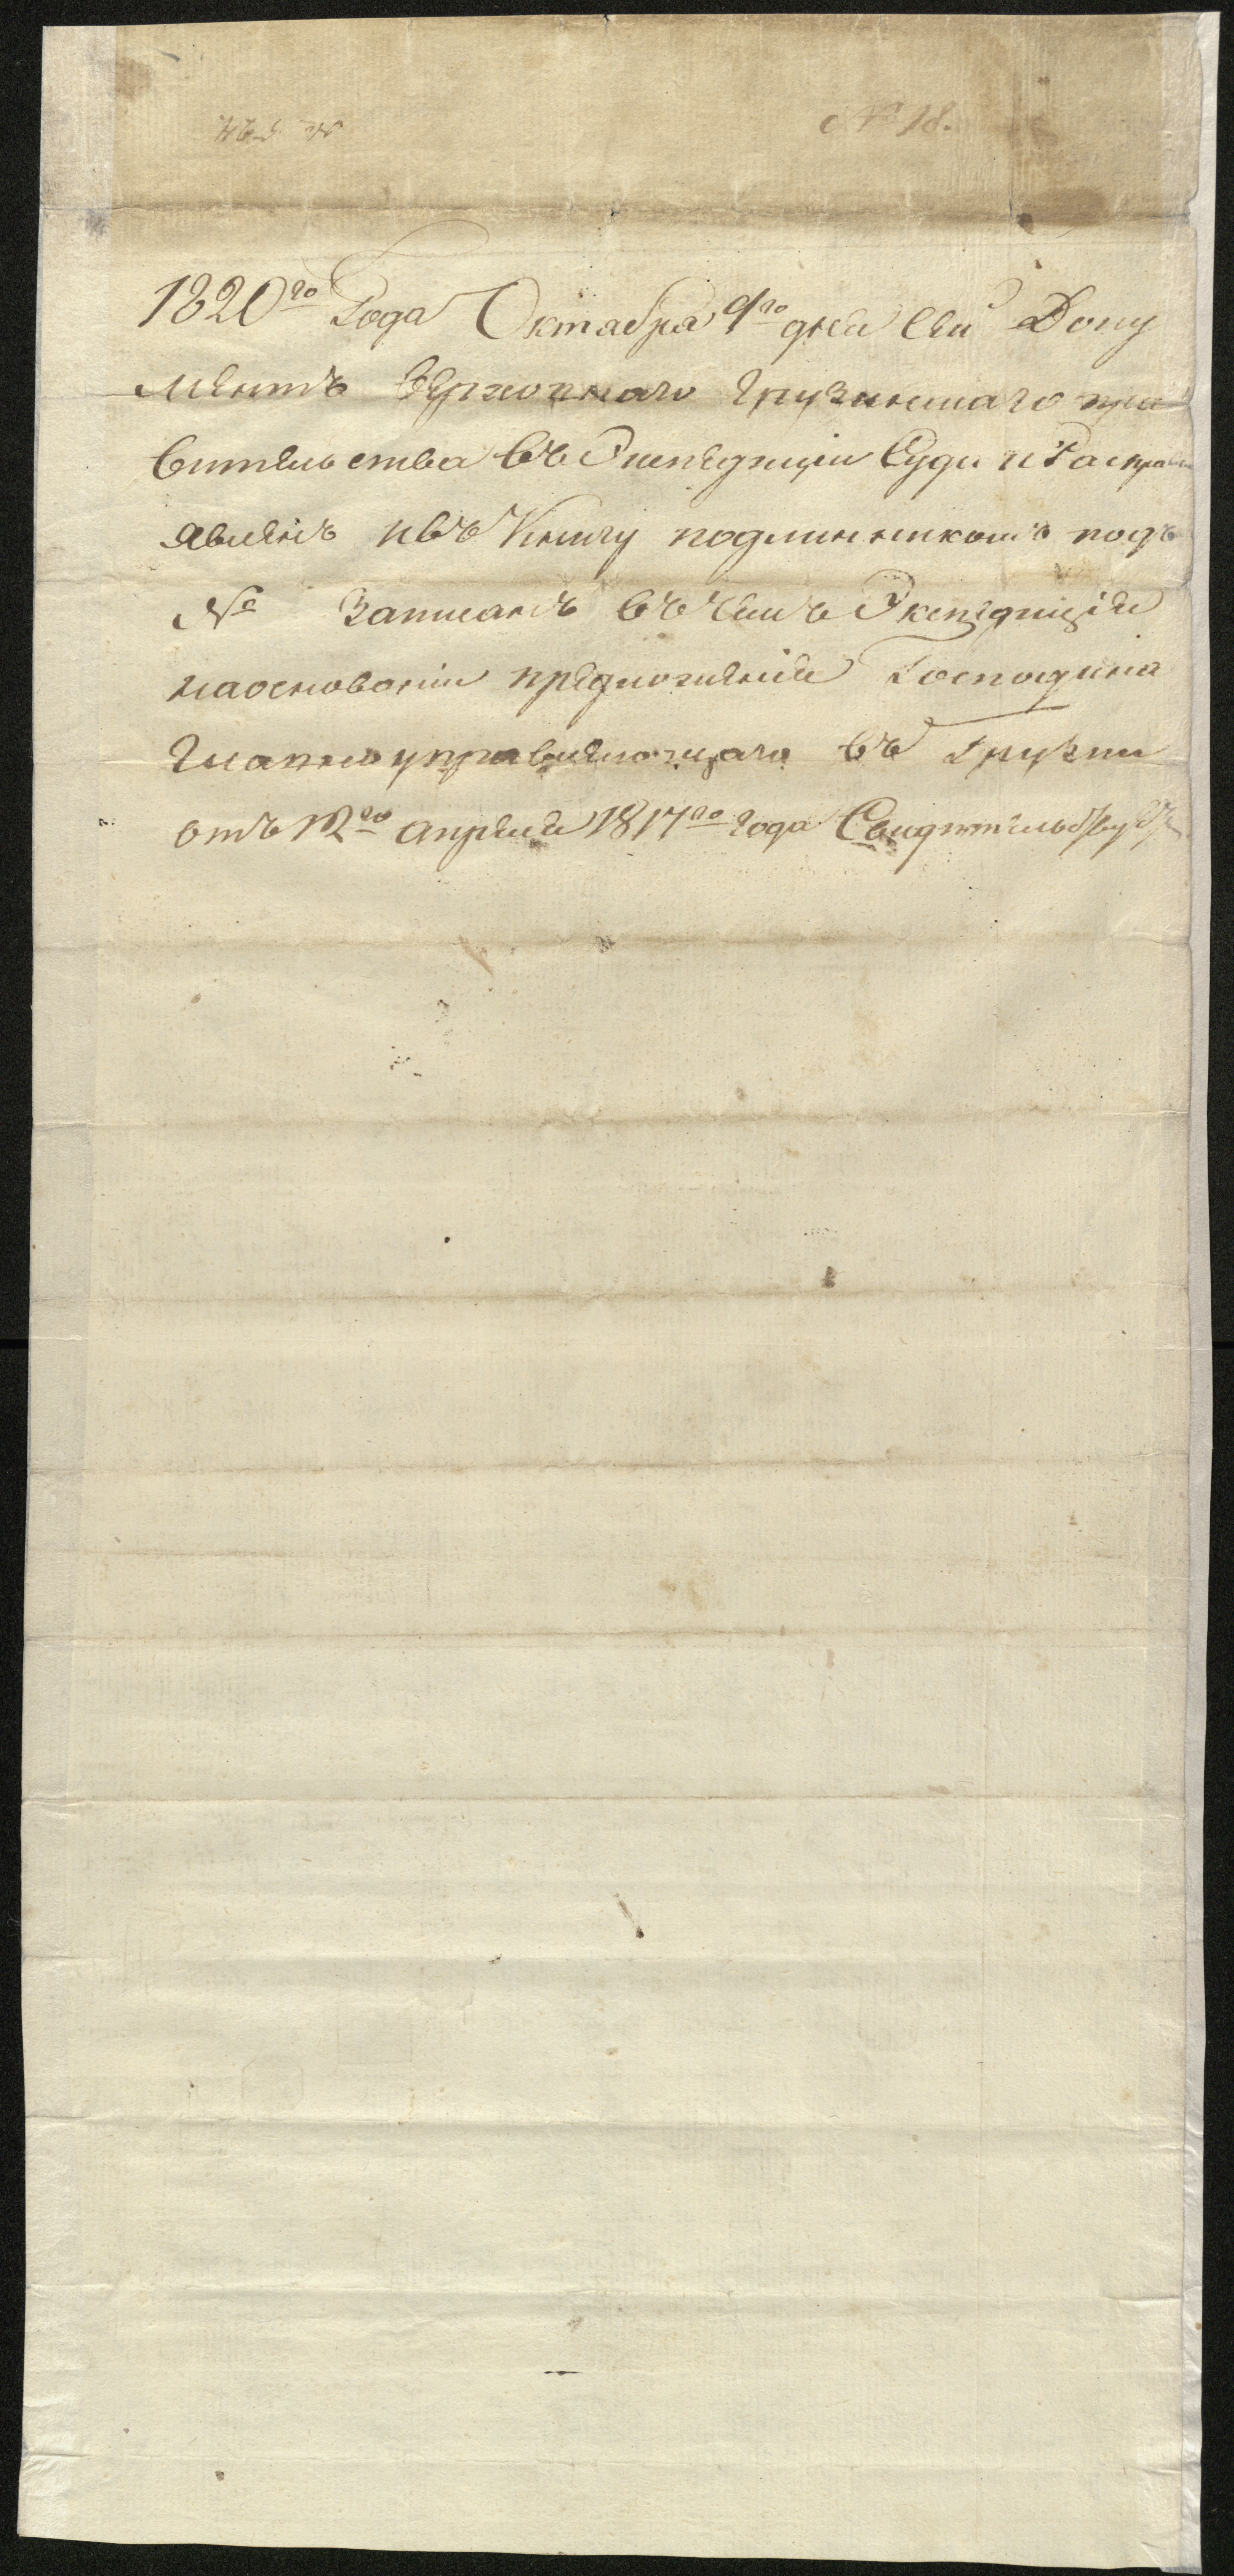 № 18.
1820го Года Октабра 9го дня Сей Доку
ментъ верховнаго Грузинскаго пра
вительства въ Экспедиціи Суда и Расправы
явленъ ивъ Книгу подлинникомъ подъ
№ Записанъ въ чемъ Экспедиція
наоснованіи предложенія Господина
Главноуправляющаго въ Грузіи
отъ 12го апреля 1817го года Свидѣтельствуетъ